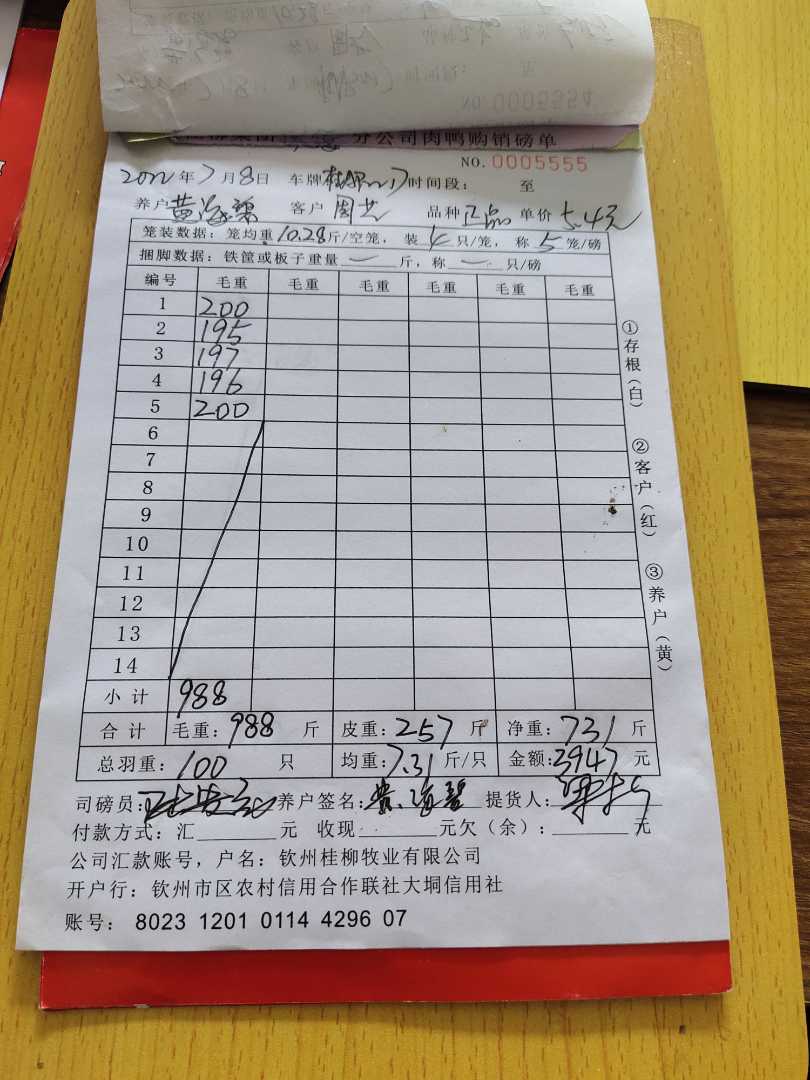 NO.0005554
分公司肉鸭购销磅单
NO. 0005555
2022年7月8日 车牌 时间段: 至
养户黄海碧 客户周艺 品种正品 单价5.4元
笼装数据: 笼均重10.28斤/空笼, 装4只/笼, 称5笼/磅
捆脚数据: 铁筐或板子重量—斤, 称—只/磅
编号 毛重 毛重 毛重 毛重 毛重 毛重
1 200
2 195
3 197
4 196
5 200
6
7
8
9
10
11
12
13
14
小计 988
合计 毛重: 988 斤 皮重: 257 斤 净重: 731 斤
总羽重: 100 只 均重: 7.31斤/只 金额: 3947 元
司磅员: 养户签名: 黄海碧 提货人:
付款方式: 汇 元 收现 元欠(余): 元
公司汇款账号, 户名: 钦州桂柳牧业有限公司
开户行: 钦州市区农村信用合作联社大垌信用社
账号: 8023 1201 0114 4296 07
①存根(白)
②客户(红)
③养户(黄)